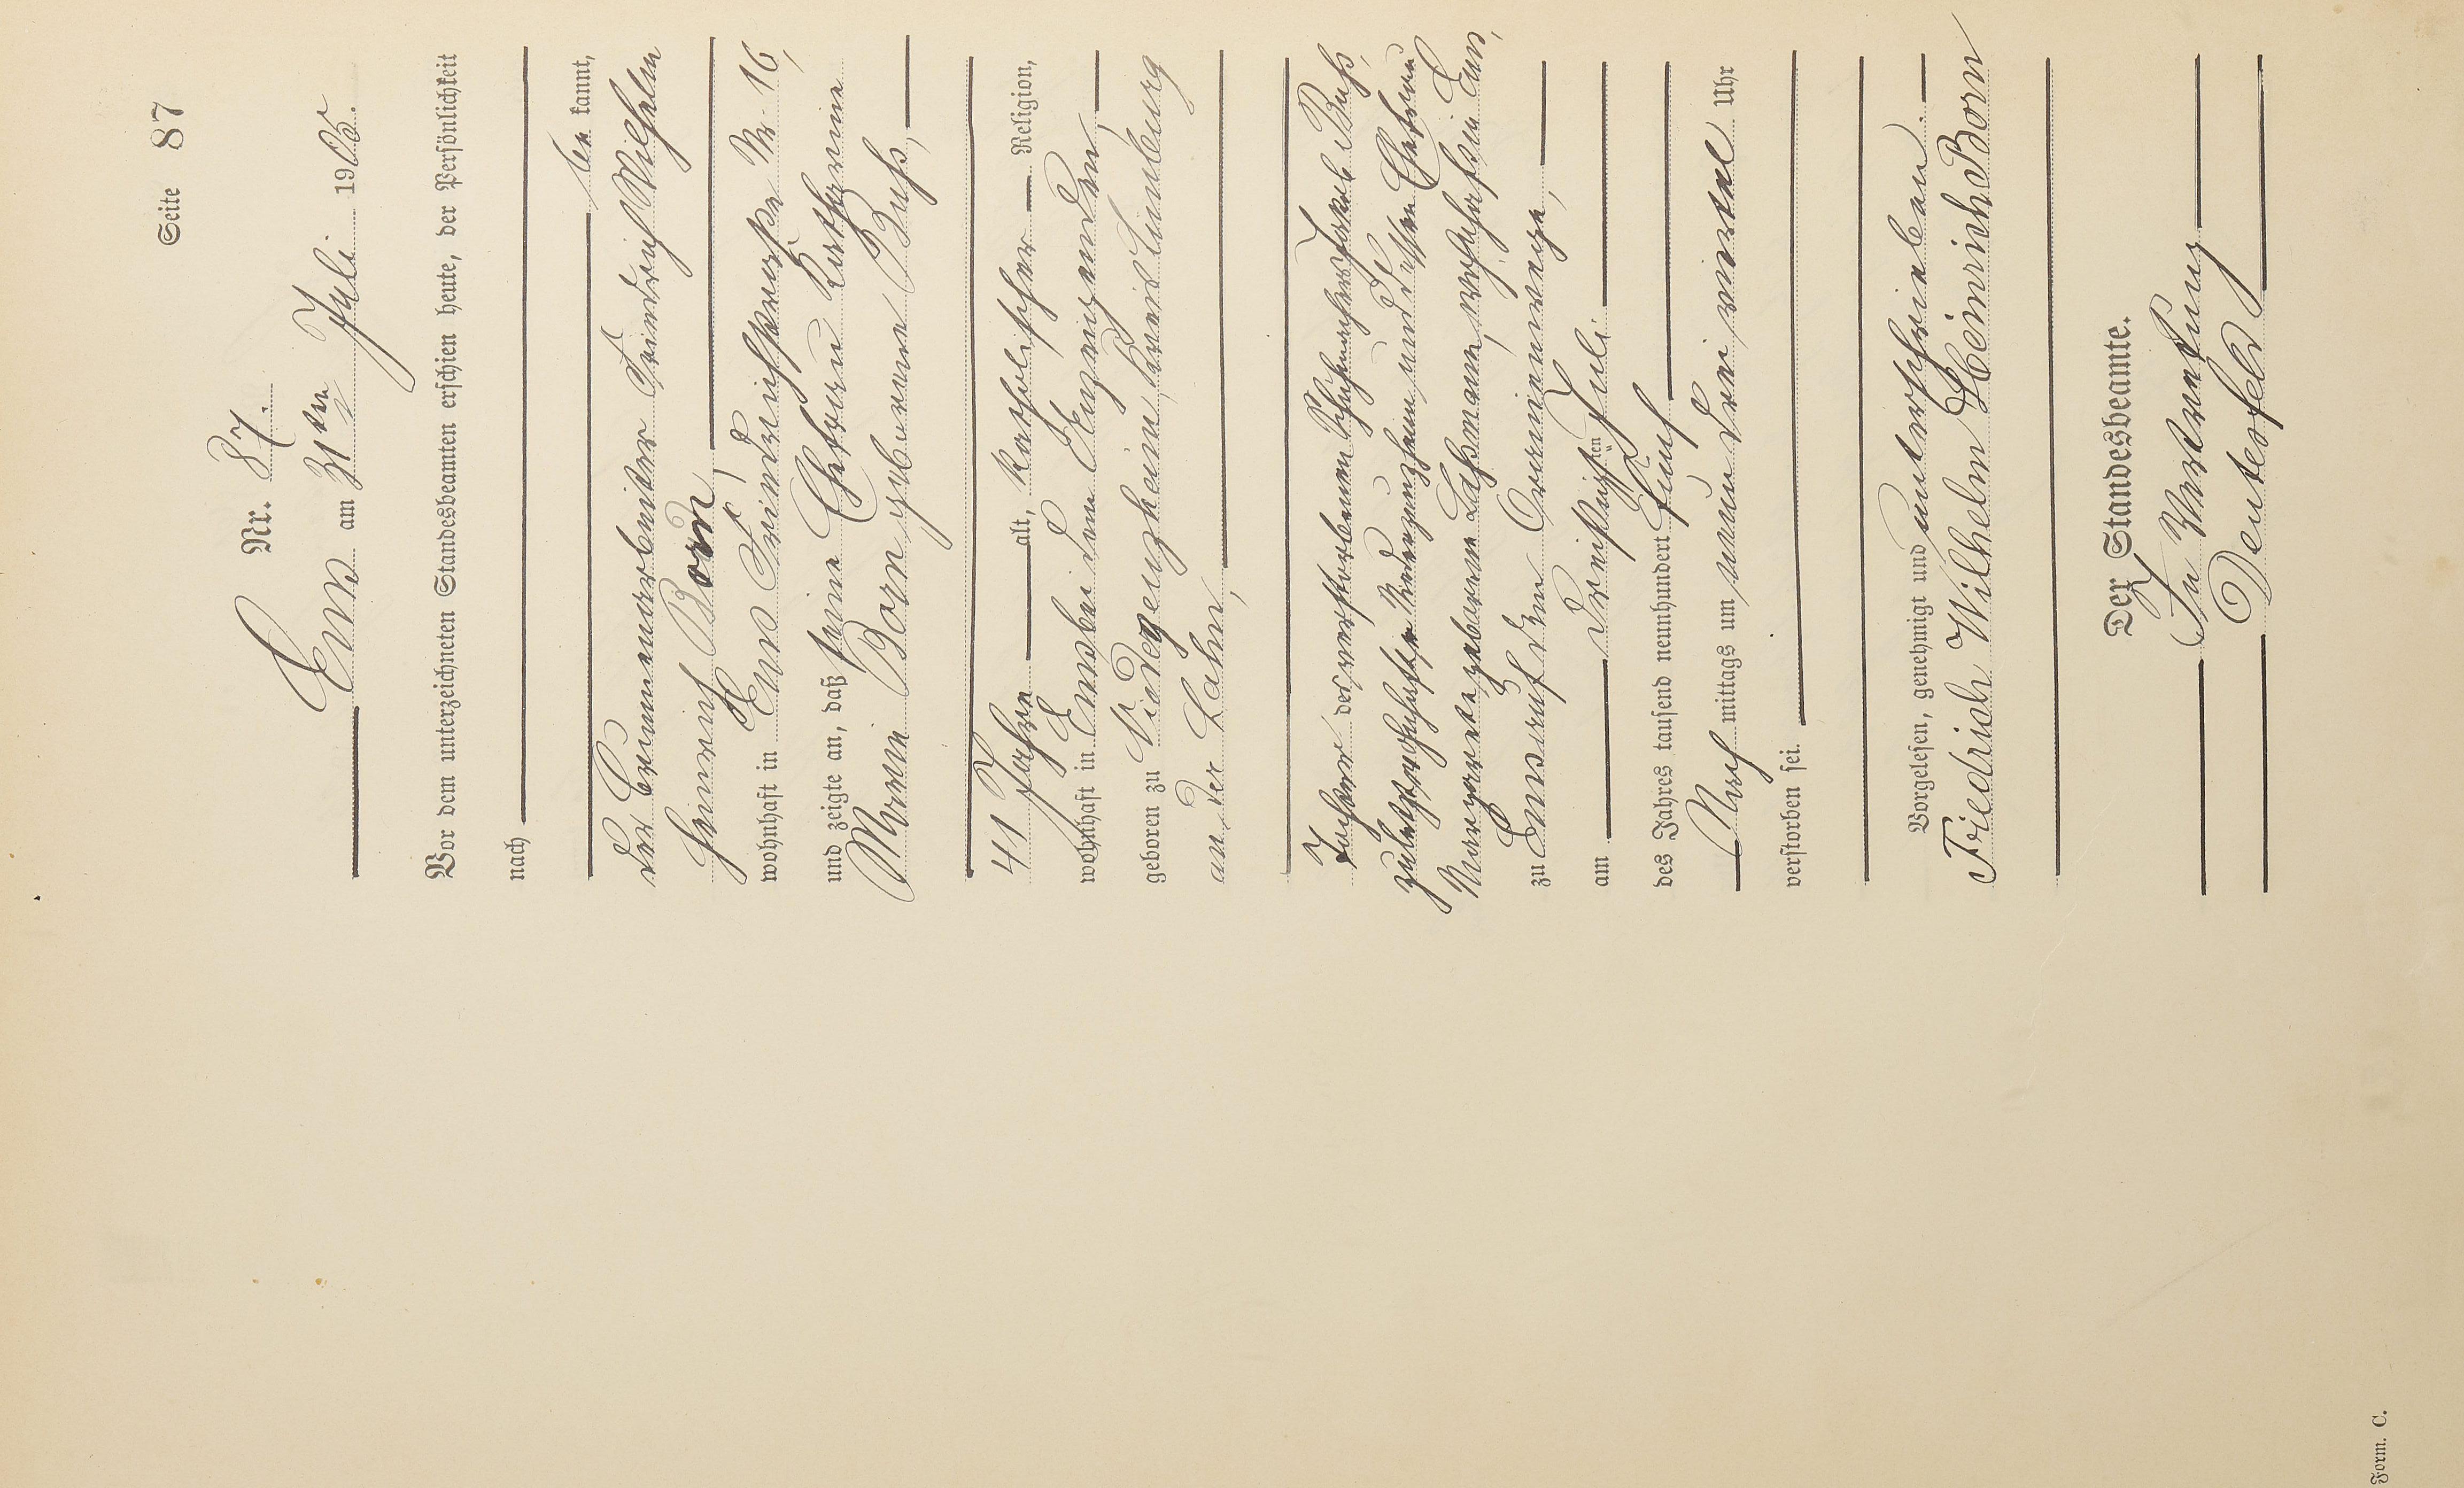 Seite 87
Nr. 87.
Ems am 31ten Juli 1905.
Vor dem unterzeichneten Standesbeamten erschien heute, der Persönlichkeit
nach
be kannt,
der Brunnenarbeiter Friedrich Wilhelm
Heinrich Born,
wohnhaft in Ems Friedrichstraße Nr. 16,
und zeigte an, daß seine Ehefrau Katharina
Maria Born geborene Buß,
41 Jahre alt, katholischer Religion,
wohnhaft in Ems bei dem Anzeigenden,
geboren zu Kreis Limburg
an der Lahn,
Tochter des verstorbenen Jakob Buß,
zuletzt wohnhaft und dessen Ehefrau
Margareta geborenen, wohnhaft in Ems,
zu Ems auf den
am dreißigsten Juli
des Jahres tausend neunhundert fünf
Nach mittags um neun drei viertel Uhr
verstorben sei.
Vorgelesen, genehmigt und unterschrieben.
Friedrich Wilhelm Heinrich Born
Der Standesbeamte.
In Vertretung
Deutesfeld
Form. C.